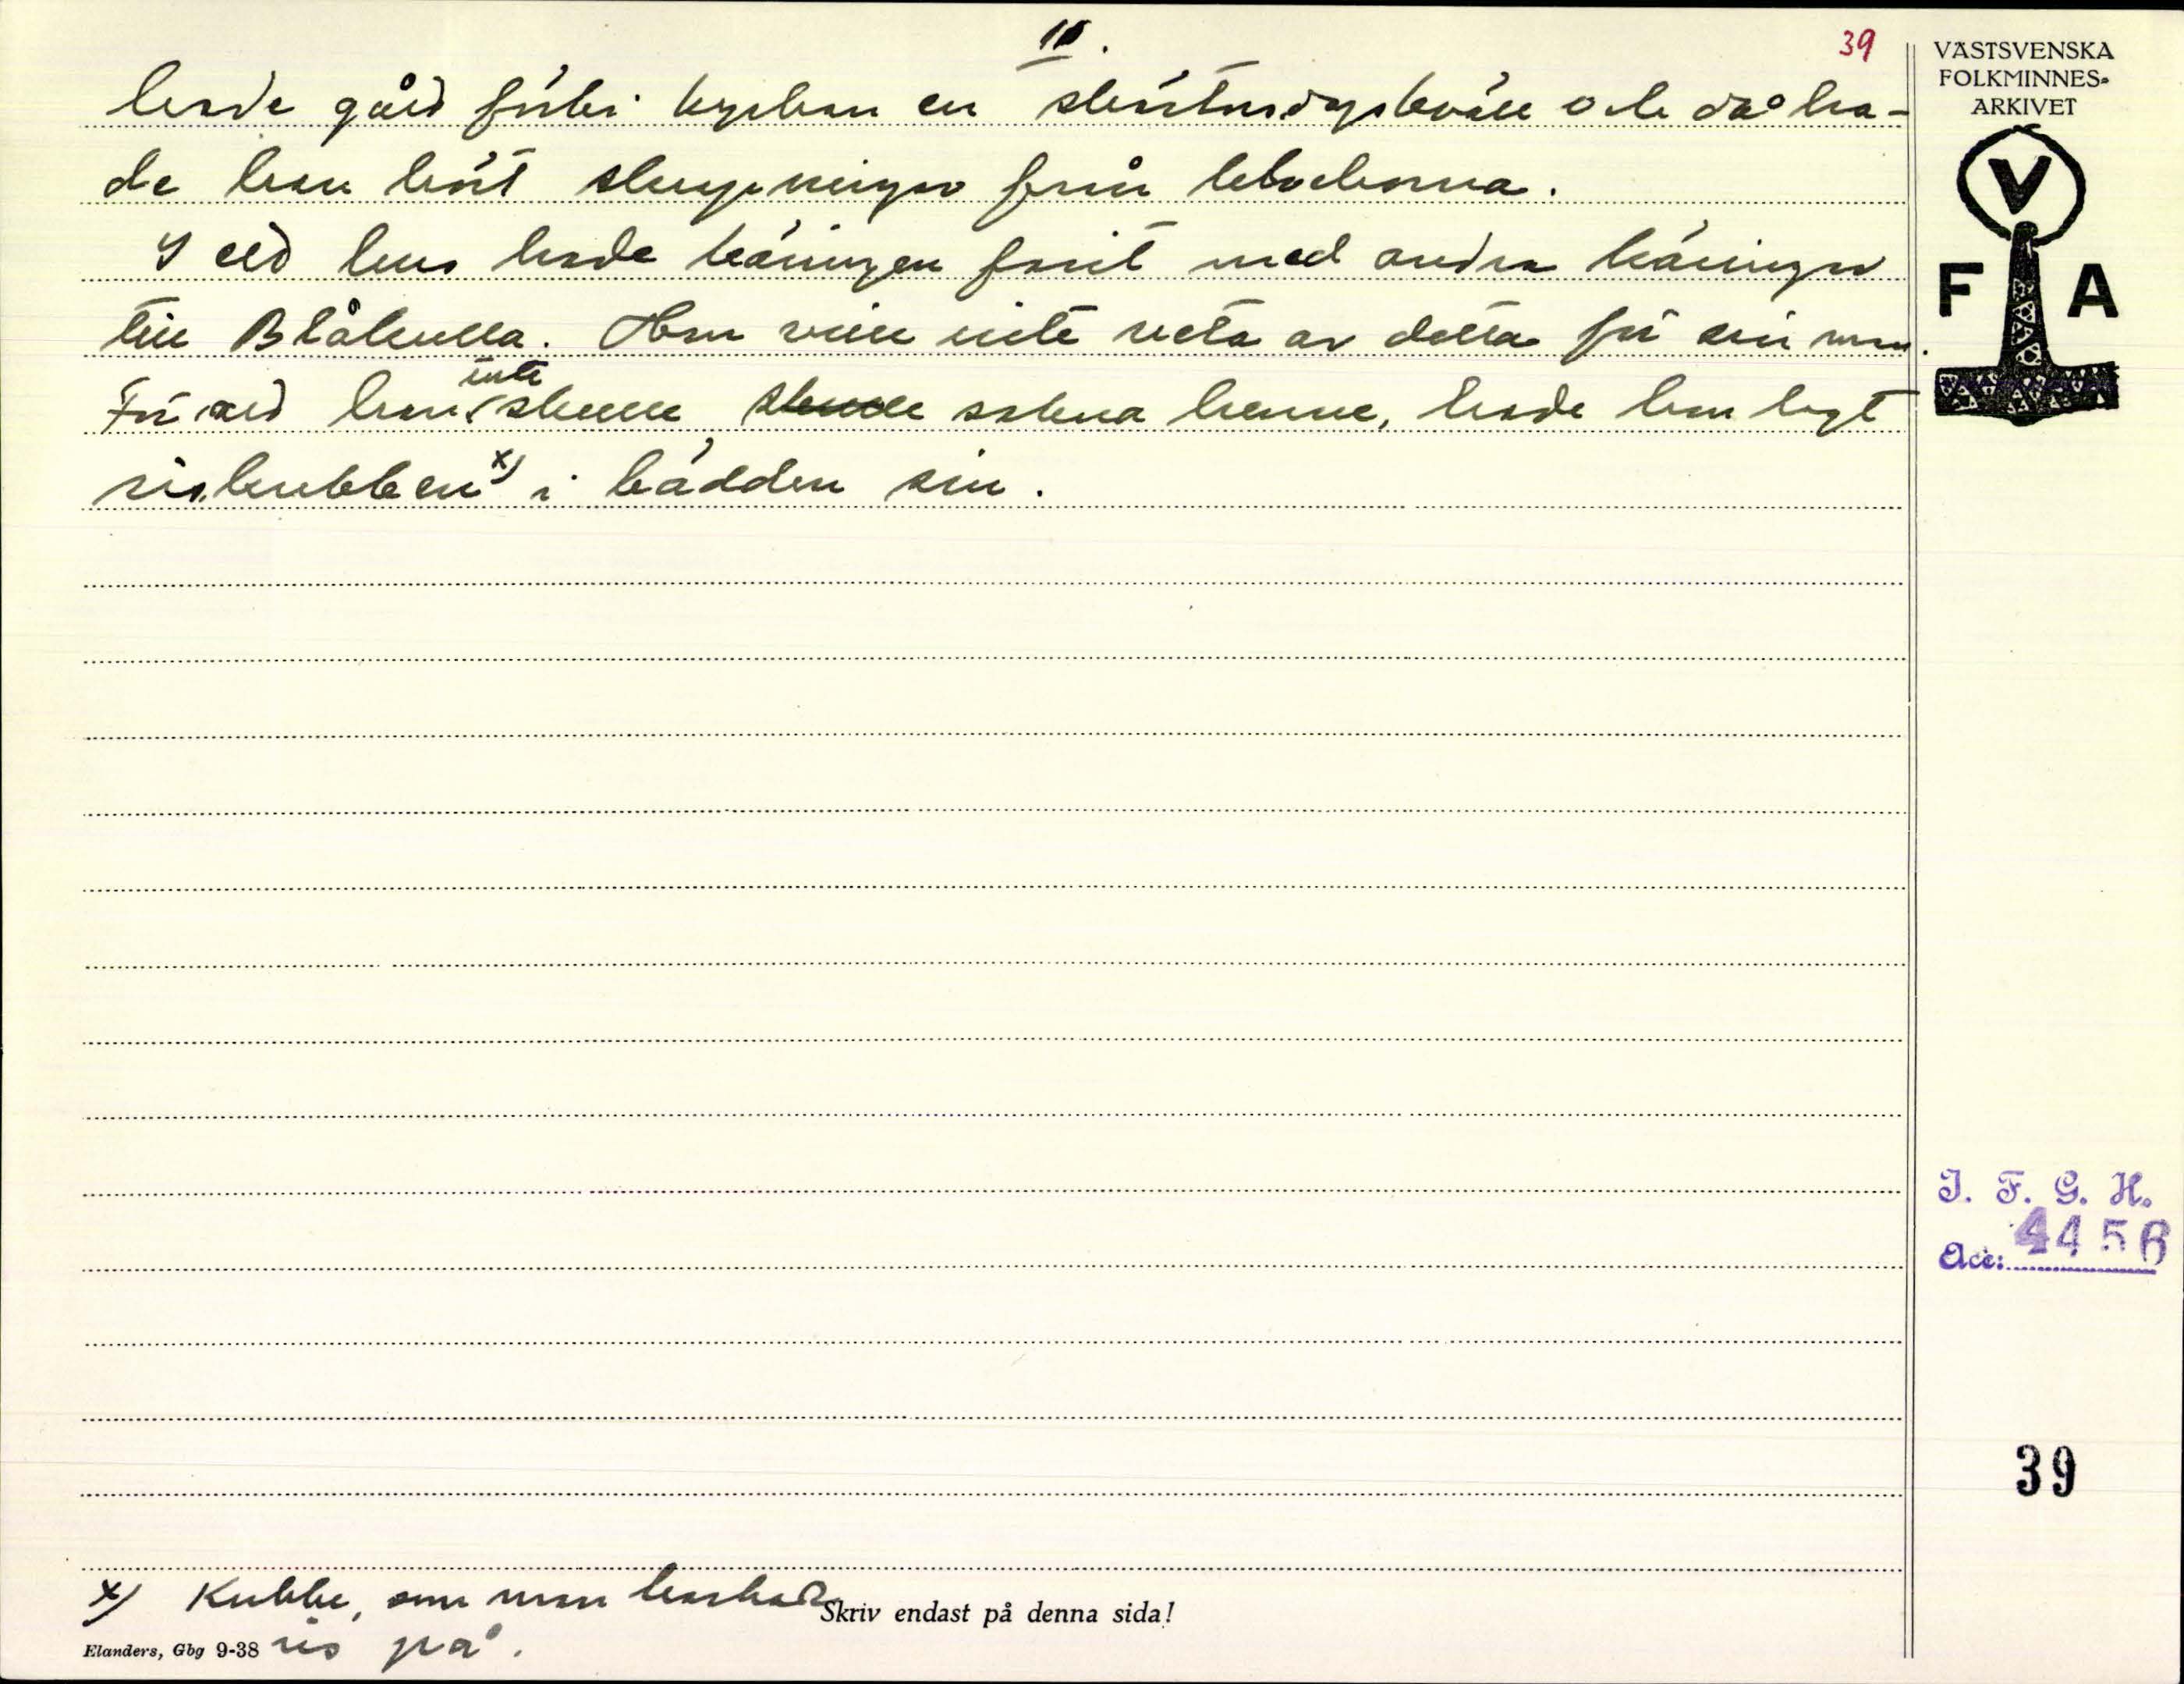 10.
39
hade gått förbi kyrkan en skärtorsdagskväll och då ha-
de han hört skrapningar från klockorna.
I ett hus hade käringen farit med andra käringar
till Blåkulla. Hon ville inte veta av detta för sin man.
För att han inte skulle skulle sakna henne, hade hon lagt
riskubben x) i bädden sin.
x) Kubbe, som man hackade
ris på.
Skriv endast på denna sida!
Elanders, Gbg 9-38
VÄSTSVENSKA
FOLKMINNES-
ARKIVET
V
F A
I. F. G. H.
Acc: 4456
39